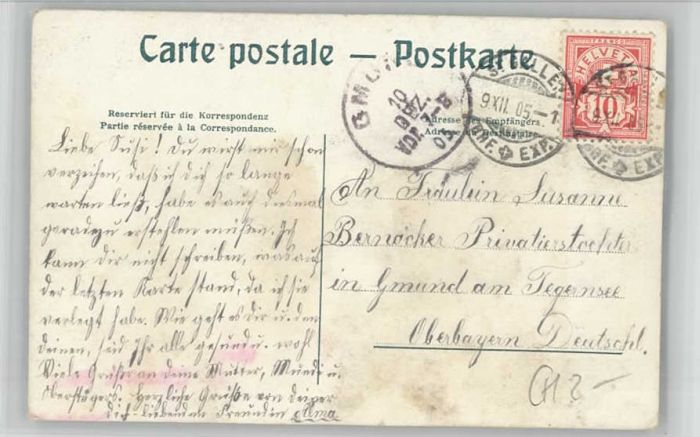 Carte postale — Postkarte
Reserviert für die Korrespondenz
Partie réservée à la Correspondance.
Adresse des Empfängers.
Adresse du Destinataire.
HELVETIA
FRANCO
10
GMU
10
DEZ.
VOR. 7-8
05
9 XII. 05 -1
EXP.
EXP.
Liebe Susi! Du wirst mir schon
verzeihen, daß ich dich so lange
warten ließ, habe es auch diesmal
geradezu erstehlen müßen. Ich
kann dir nicht schreiben, was auf
der letzten Karte stand, da ich sie
verlegt habe. Wie geht es dir u. den
deinen, seid Ihr alle gesund u. wohl
Viele Grüße an deine Mutter, Mundi u.
Oberstügers. Herzliche Grüße von deiner
dich liebenden Freundin Alma
An Fräulein Susanne
Bernöcker Privatierstochter
in Gmund am Tegernsee
Oberbayern Deutschl.
CH 2 -